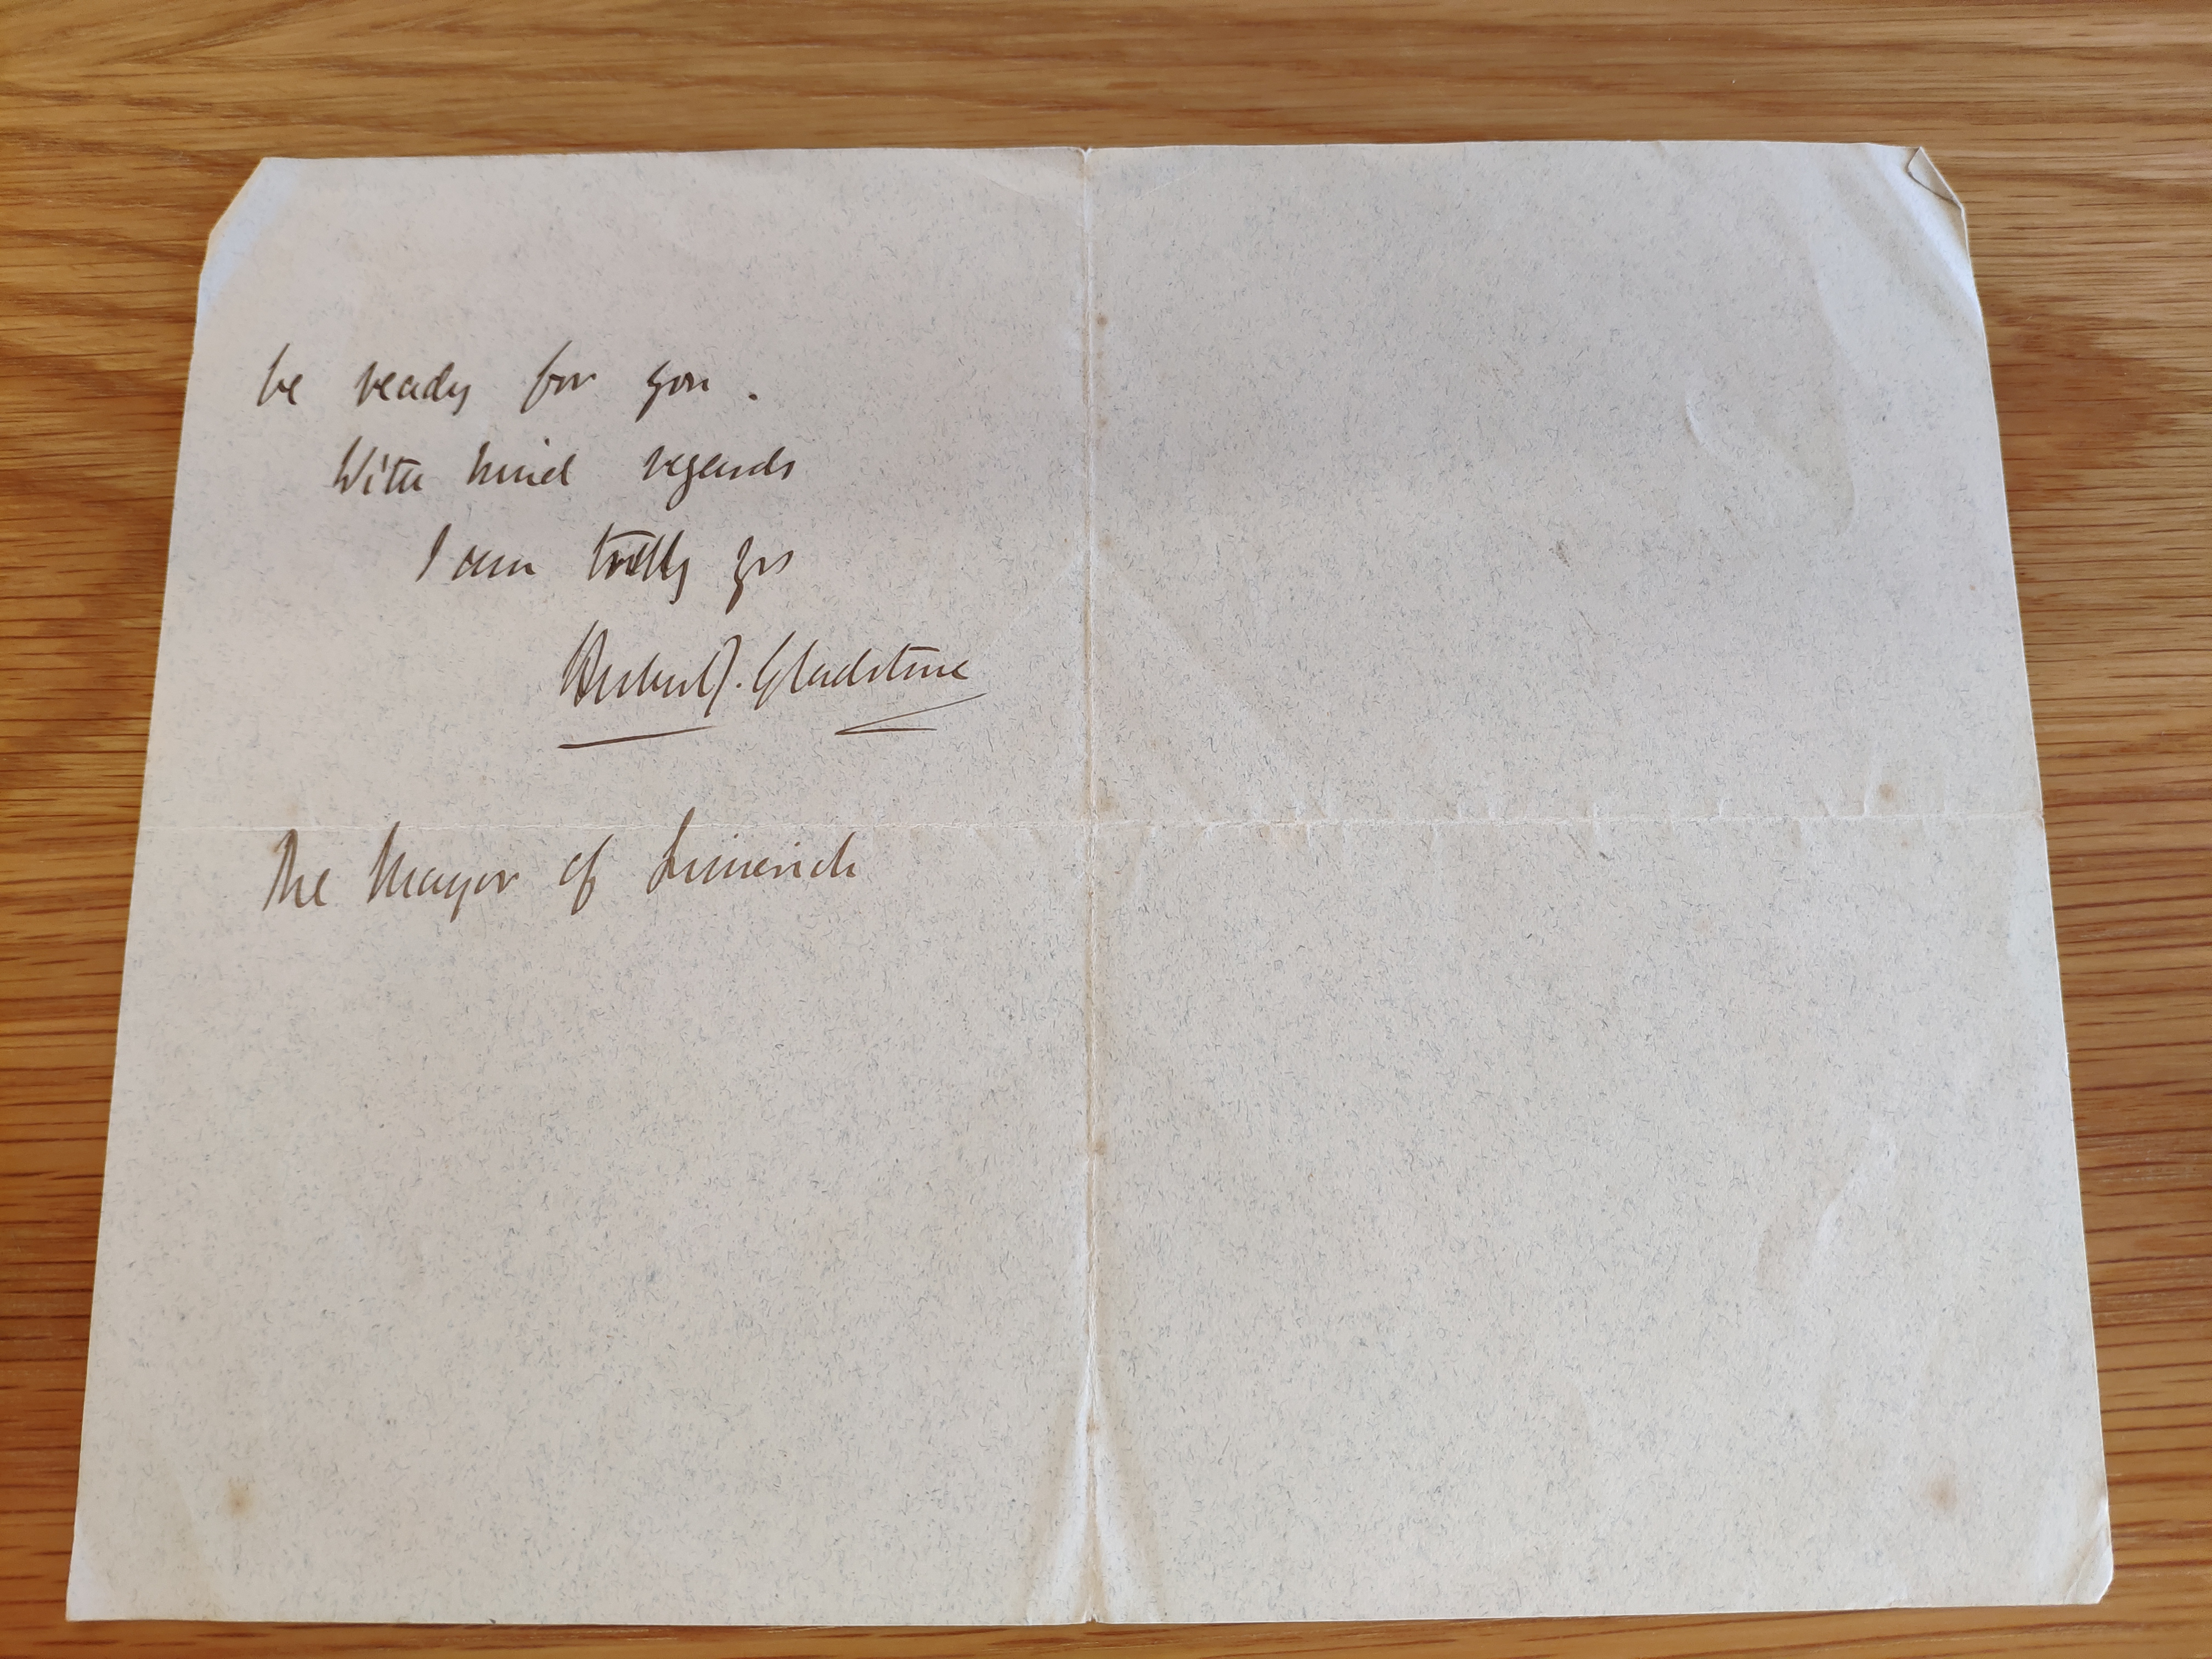 be ready for you.
With kind regards
I am truly yrs
Herbert J. Gladstone
The Mayor of Limerick